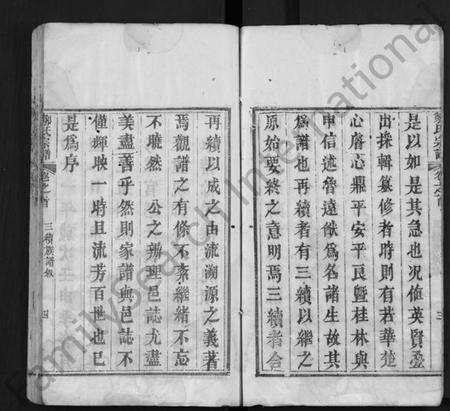 是以如是其急也况值英賢登
出採輯纂修者時則有若華楚
心唇心鼎平安平良暨桂林與
申信述魯遠猷為名諸生故其
為譜也再續者有三續以繼之
原始要終之意明焉三續者合
再續以成之由流溯源之義著
焉觀譜之有條不紊繼緒不忘
不曉然 公之辦理邑誌尤盡
美盡善乎然則家譜與邑誌不
僅輝映一時且流芳百世也已
是為序
三續族譜叙
四
FamilySearch International